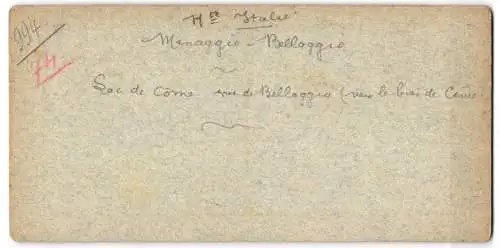 994
74.
Hte Italie
Menaggio - Bellaggio
Lac de Côme vue de Bellaggio (vers le bas de Côme